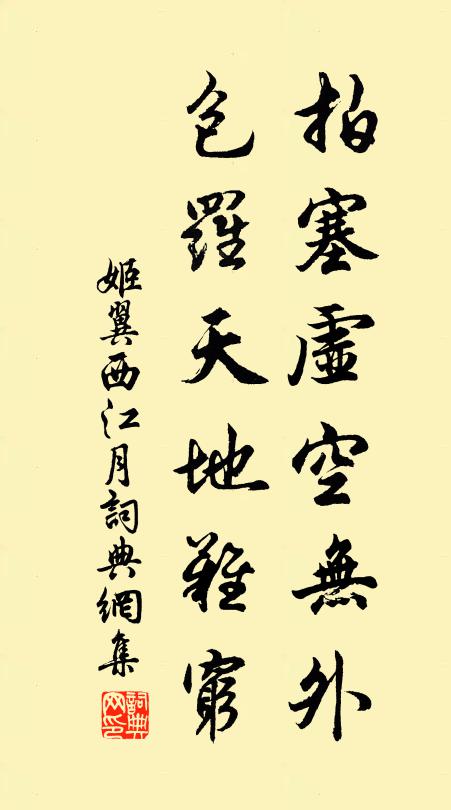 拍塞虛空無外
包羅天地難窮
姬翼西江月詞典網集
詞典网印